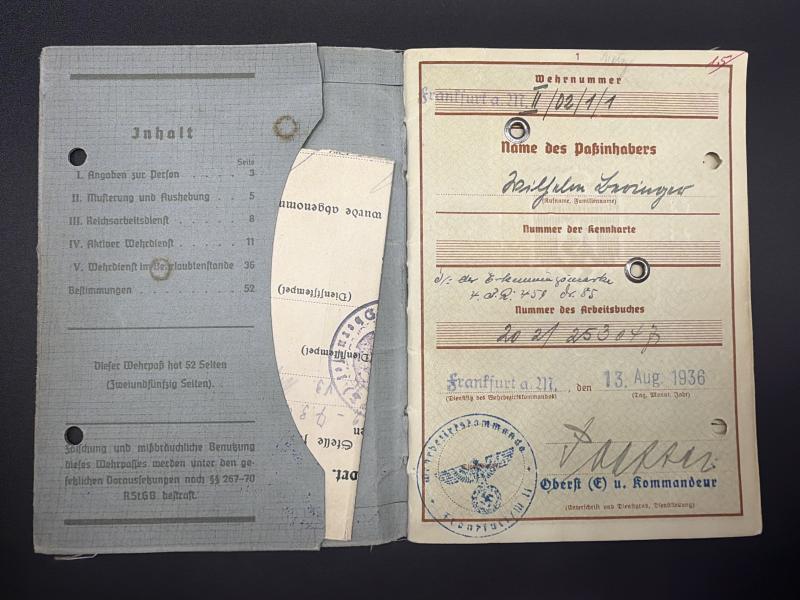 Inhalt
Seite
I. Angaben zur Person . . . . 3
II. Musterung und Aushebung . . . 5
III. Reichsarbeitsdienst . . . . 8
IV. Aktiver Wehrdienst . . . . 11
V. Wehrdienst im Beurlaubtenstande 36
Bestimmungen . . . . 52
Dieser Wehrpaß hat 52 Seiten
(Zweiundfünfzig Seiten).
Fälschung und mißbräuchliche Benutzung
dieses Wehrpasses werden unter den ge-
setzlichen Voraussetzungen nach §§ 267-70
RStGB bestraft.
wurde abgenomm
(Dienststempel)
(Dienststempel)
Stelle
1
15
Wehrnummer
Frankfurt a. M. II/02/1/1
Name des Paßinhabers
Wilhelm Beringer
(Rufname, Familienname)
Nummer der Kennkarte
der Erkennungsmarke
Nummer des Arbeitsbuches
Frankfurt a. M. den 13. Aug. 1936
(Dienstsitz des Wehrbezirkskommandos) (Tag, Monat, Jahr)
Wehrbezirkskommando
Oberst (E) u. Kommandeur
(Unterschrift und Dienstgrad, Dienststellung)